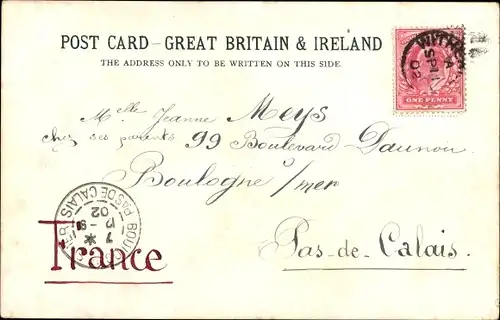 POST CARD - GREAT BRITAIN & IRELAND
THE ADDRESS ONLY TO BE WRITTEN ON THIS SIDE.
ONE PENNY
SP 11
02
Melle Jeanne Meys
chez ses parents 99 Boulevard Daunou
Boulogne s/mer
Pas-de-Calais.
France
PAS DE CALAIS
7 *
13 - 9
02